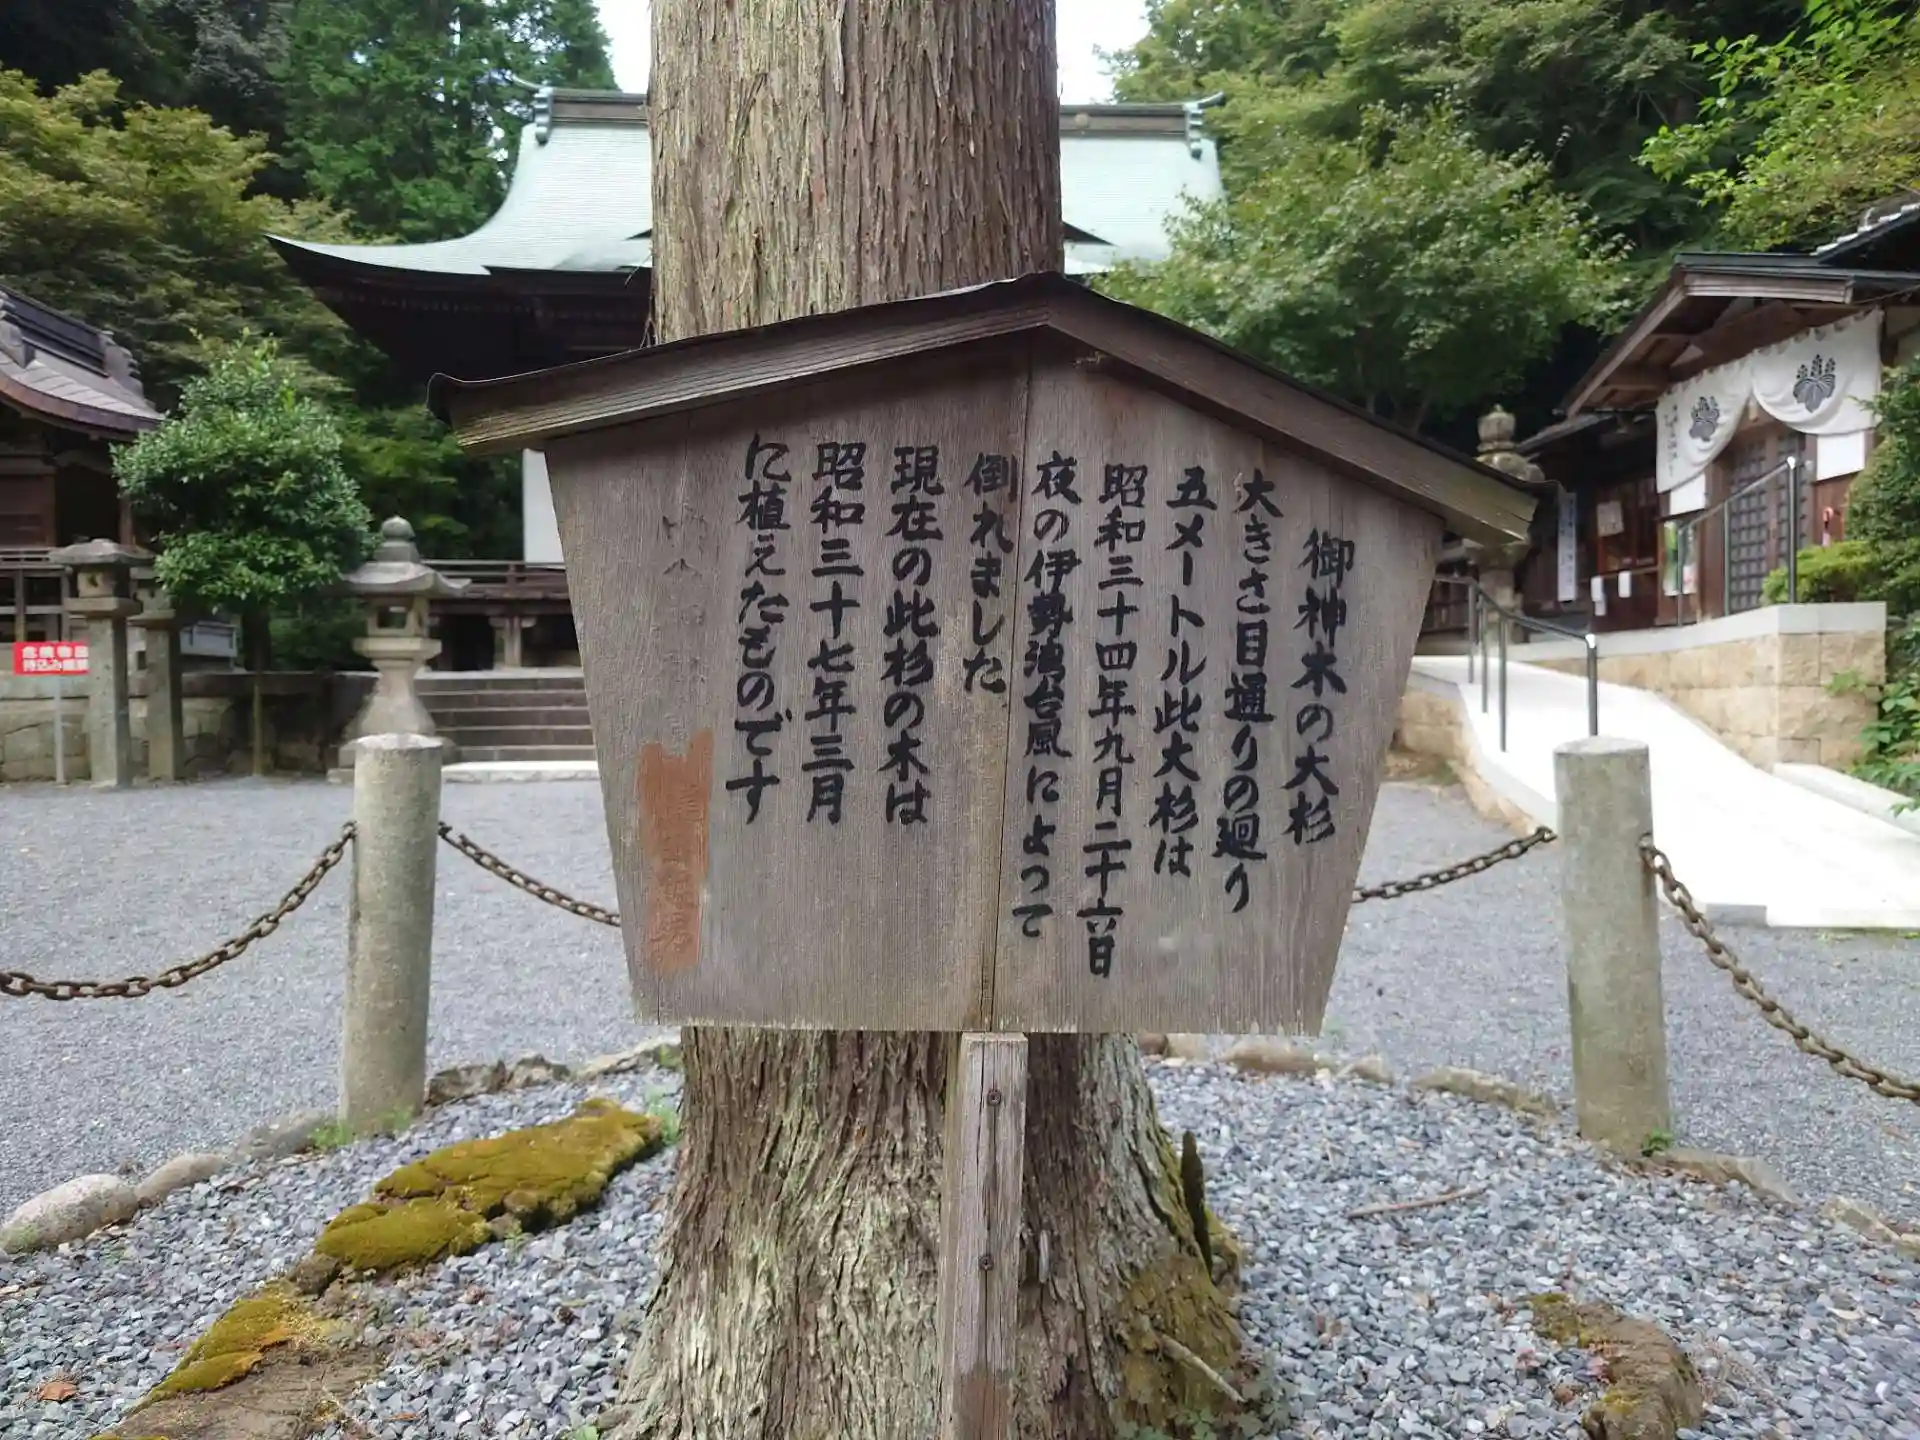 御神木の大杉
大きさ目通りの廻り
五メートル此大杉は
昭和三十四年九月二十六日
夜の伊勢湾台風によって
倒れました
現在の此杉の木は
昭和三十七年三月
に植えたものです
危険物品